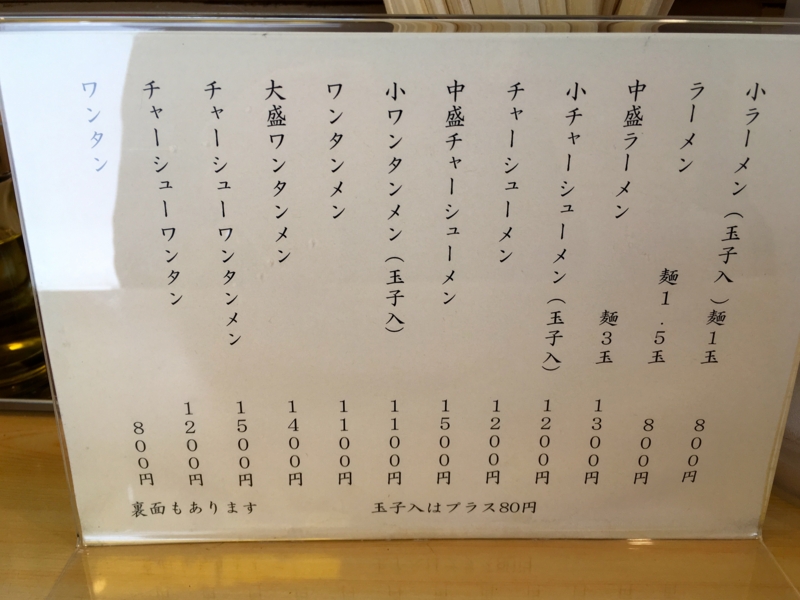 小ラーメン(玉子入)麺1玉 800円
ラーメン 麺1.5玉 800円
中盛ラーメン 麺3玉 1300円
小チャーシューメン(玉子入) 1200円
チャーシューメン 1200円
中盛チャーシューメン 1500円
小ワンタンメン(玉子入) 1100円
ワンタンメン 1100円
大盛ワンタンメン 1400円
チャーシューワンタンメン 1500円
チャーシューワンタン 1200円
ワンタン 800円
玉子入はプラス80円
裏面もあります